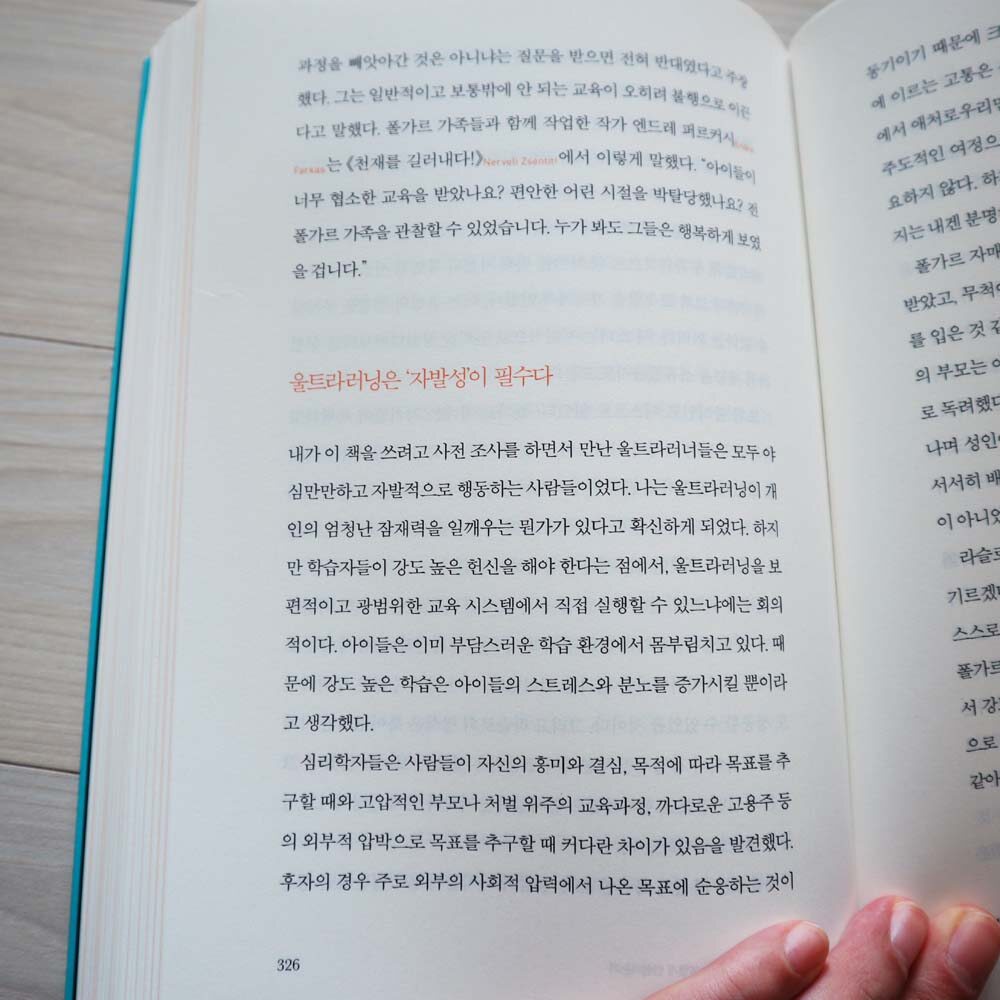 과정을 빼앗아간 것은 아니냐는 질문을 받으면 전혀 반대였다고 주장
했다. 그는 일반적이고 보통밖에 안 되는 교육이 오히려 불행으로 이끈
다고 말했다. 폴가르 가족들과 함께 작업한 작가 엔드레 퍼르커시Endre
Farkas는 《천재를 길러내다!》Nevelj Zsenit!에서 이렇게 말했다. “아이들이
너무 협소한 교육을 받았나요? 편안한 어린 시절을 박탈당했나요? 전
폴가르 가족을 관찰할 수 있었습니다. 누가 봐도 그들은 행복하게 보였
을 겁니다.”
울트라러닝은 ‘자발성’이 필수다
내가 이 책을 쓰려고 사전 조사를 하면서 만난 울트라러너들은 모두 야
심만만하고 자발적으로 행동하는 사람들이었다. 나는 울트라러닝이 개
인의 엄청난 잠재력을 일깨우는 뭔가가 있다고 확신하게 되었다. 하지
만 학습자들이 강도 높은 헌신을 해야 한다는 점에서, 울트라러닝을 보
편적이고 광범위한 교육 시스템에서 직접 실행할 수 있느냐에는 회의
적이다. 아이들은 이미 부담스러운 학습 환경에서 몸부림치고 있다. 때
문에 강도 높은 학습은 아이들의 스트레스와 분노를 증가시킬 뿐이라
고 생각했다.
심리학자들은 사람들이 자신의 흥미와 결심, 목적에 따라 목표를 추
구할 때와 고압적인 부모나 처벌 위주의 교육과정, 까다로운 고용주 등
의 외부적 압박으로 목표를 추구할 때 커다란 차이가 있음을 발견했다.
후자의 경우 주로 외부의 사회적 압력에서 나온 목표에 순응하는 것이
326
동기이기 때문에
에 이르는 고통은
에서 애처로우리만
주도적인 여정으
요하지 않다. 하
지는 내겐 분명
폴가르 자매
받았고, 무척이
를 입은 것
의 부모는
로 독려했다
나며 성인이
서서히 배
이 아니었
라슬로
기르겠다
스스로
폴가르
서 강
으로
같아